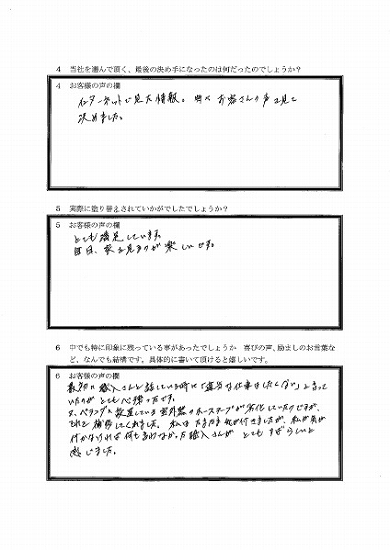 4 当社を選んで頂く、最後の決め手になったのは何だったのでしょうか?
4 お客様の声の欄
インターネットで見た情報。 お客さんの声を見て
決めました。
5 実際に塗り替えされていかがでしたでしょうか?
5 お客様の声の欄
とても満足しています。
毎日、家を見るのが楽しいです。
6 中でも特に印象に残っている事があったでしょうか 喜びの声、励ましのお言葉な
ど、なんでも結構です。具体的に書いて頂けると嬉しいです。
6 お客様の声の欄
最初に職人さんと話している時に「適当な仕事はしたくない」と言って
いたのが とても心強かったです。
又、ベランダに設置している室外器のホースカバーが劣化していたのですが、
それを補修してくれました。 私は たまたま気が付きましたが、私が気が
付かなければ何も言わない 職人さんが とても すばらしいと
感じました。